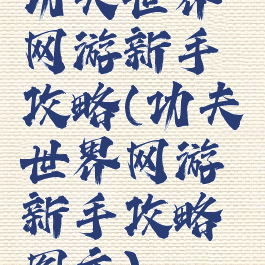 功夫世界
网游新手
攻略(功夫
世界网游
新手攻略
图文)